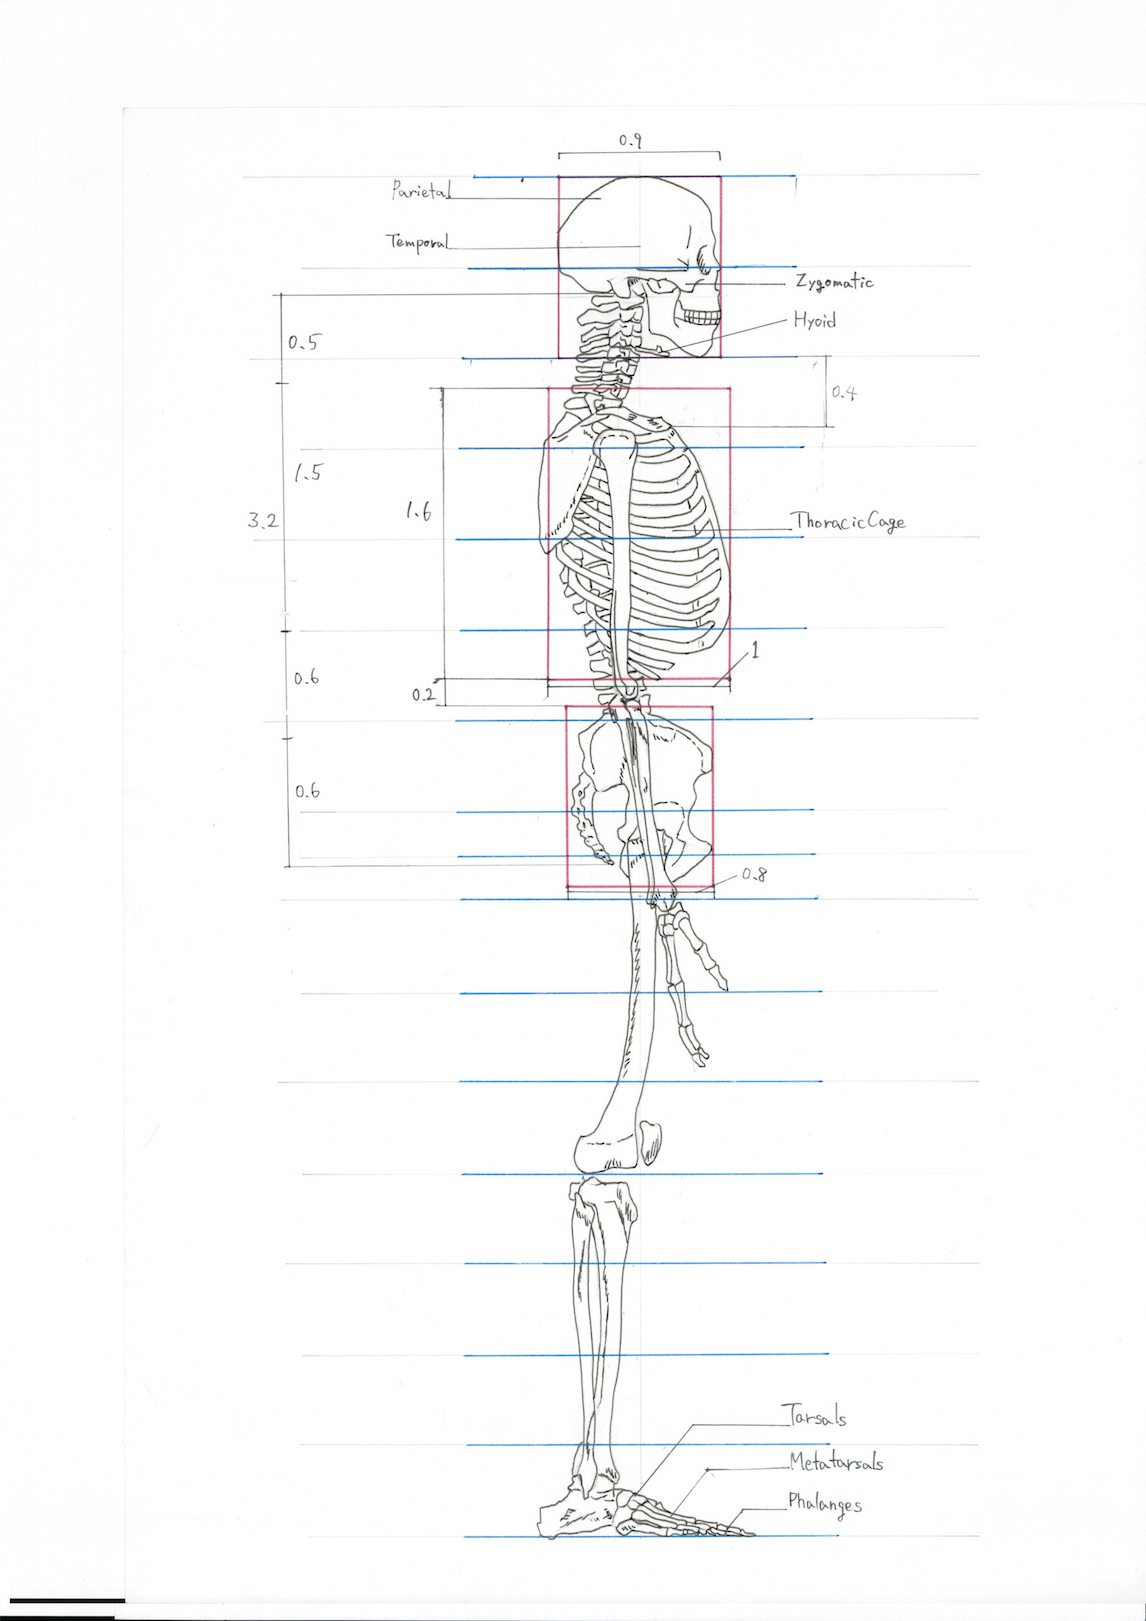 0.9
Parietal
Temporal
Zygomatic
Hyoid
0.5
0.4
1.5
1.6
3.2
Thoracic Cage
1
0.6
0.2
0.6
0.8
Tarsals
Metatarsals
Phalanges